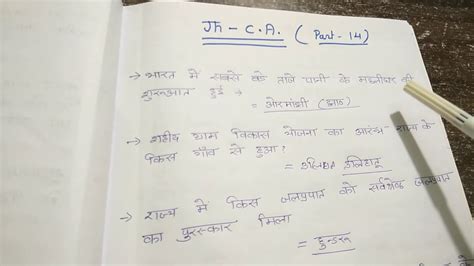 Jh - C.A. ( Part - 14 )
→ भारत में सबसे बडे ताजे पानी के मछलीघर की
शुरूआत हुई →
= ओरमांझी (झाऱ)
→ शहीद ग्राम विकास योजना का आरंभ राज्य के
किस गाँव से हुआ?
= उलिहातू
→ राज्य में किस जलप्रपात को सर्वश्रेष्ठ जलप्रपात
का पुरस्कार मिला
= हुन्डरू